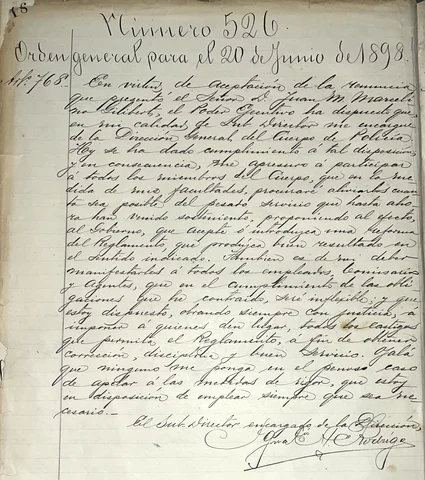 18
Número 526.
Orden general para el 20 de Junio de 1898.
Art.º 768. En virtud de aceptación de la renuncia
que presentó el Señor D. Juan M. Marceli
no Gilibert, el Poder Ejecutivo ha dispuesto que
en mi calidad de Sub Director me encargue
de la Dirección General del Cuerpo de Policía.
Hoy se ha dado cumplimiento á tal disposición
y en consecuencia, me apresuro á participar
á todos los miembros del Cuerpo, que en la me
dida de mis facultades, procuraré aliviarles cuan
to sea posible del pesado servicio que hasta aho
ra han venido sosteniendo, proponiendo al efecto,
al Gobierno, que acepte é introduzca una reforma
del Reglamento, que produzca buen resultado en
el sentido indicado. Tambien es de mi deber
manifestarles á todos los empleados, Comisarios
y Agentes, que en el cumplimiento de las obli
gaciones que he contraido, seré inflexible; y que
estoy dispuesto, obrando siempre con justicia, á
imponer á quienes den lugar, todos los castigos
que permita el Reglamento, á fin de obtener
corrección, disciplina y buen servicio. Ojalá
que ninguno me ponga en el penoso caso
de apelar á las medidas de rigor, que estoy
en disposición de emplear siempre que sea ne
cesario.—
El Sub Director encargado de la Dirección,